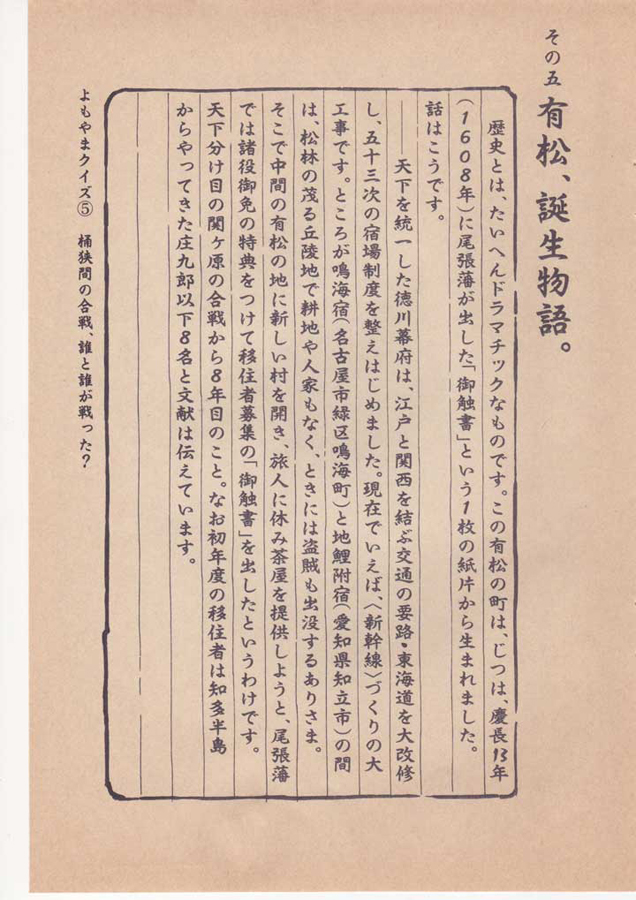 その五 有松、誕生物語。
歴史とは、たいへんドラマチックなものです。この有松の町は、じつは、慶長13年
(1608年)に尾張藩が出した「御触書」という1枚の紙片から生まれました。
話はこうです。
――天下を統一した徳川幕府は、江戸と関西を結ぶ交通の要路・東海道を大改修
し、五十三次の宿場制度を整えはじめました。現在でいえば、〈新幹線〉づくりの大
工事です。ところが鳴海宿(名古屋市緑区鳴海町)と地鯉附宿(愛知県知立市)の間
は、松林の茂る丘陵地で耕地や人家もなく、ときには盗賊も出没するありさま。
そこで中間の有松の地に新しい村を開き、旅人に休み茶屋を提供しようと、尾張藩
では諸役御免の特典をつけて移住者募集の「御触書」を出したというわけです。
天下分け目の関ヶ原の合戦から8年目のこと。なお初年度の移住者は知多半島
からやってきた庄九郎以下8名と文献は伝えています。
よもやまクイズ⑤ 桶狭間の合戦、誰と誰が戦った?